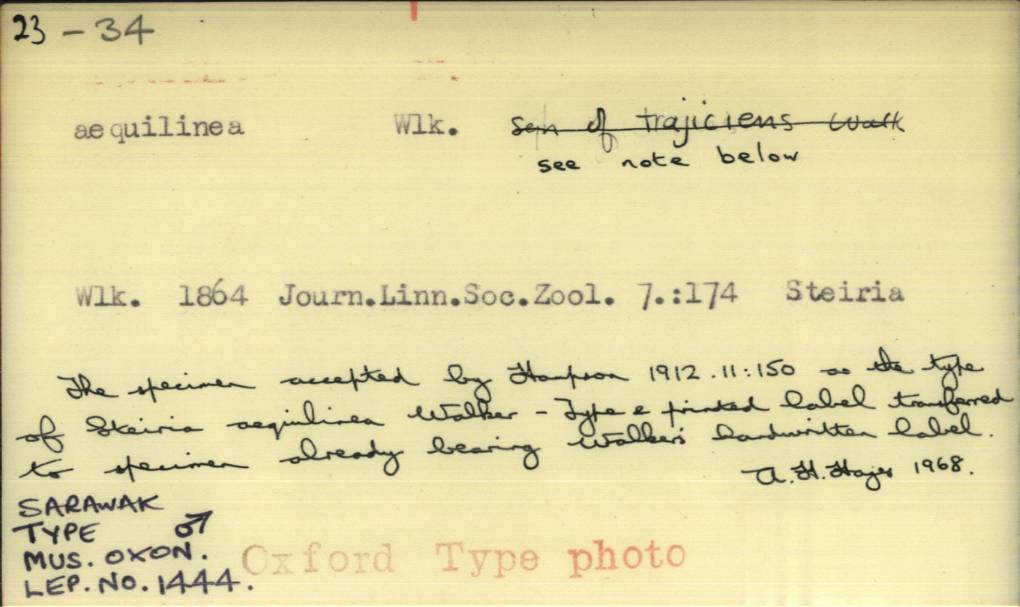 23-34
aequilinea Wlk. Syn of trajiciens Walk
see note below
Wlk. 1864 Journ.Linn.Soc.Zool. 7.:174 Steiria
The specimen accepted by Hampson 1912.11:150 as the type
of Steiria aequilinea Walker - Type & printed label transferred
to specimen already bearing Walker's handwritten label.
A.H.Hayes 1968.
SARAWAK
TYPE ♂
MUS. OXON.
LEP. NO. 1444.
Oxford Type photo